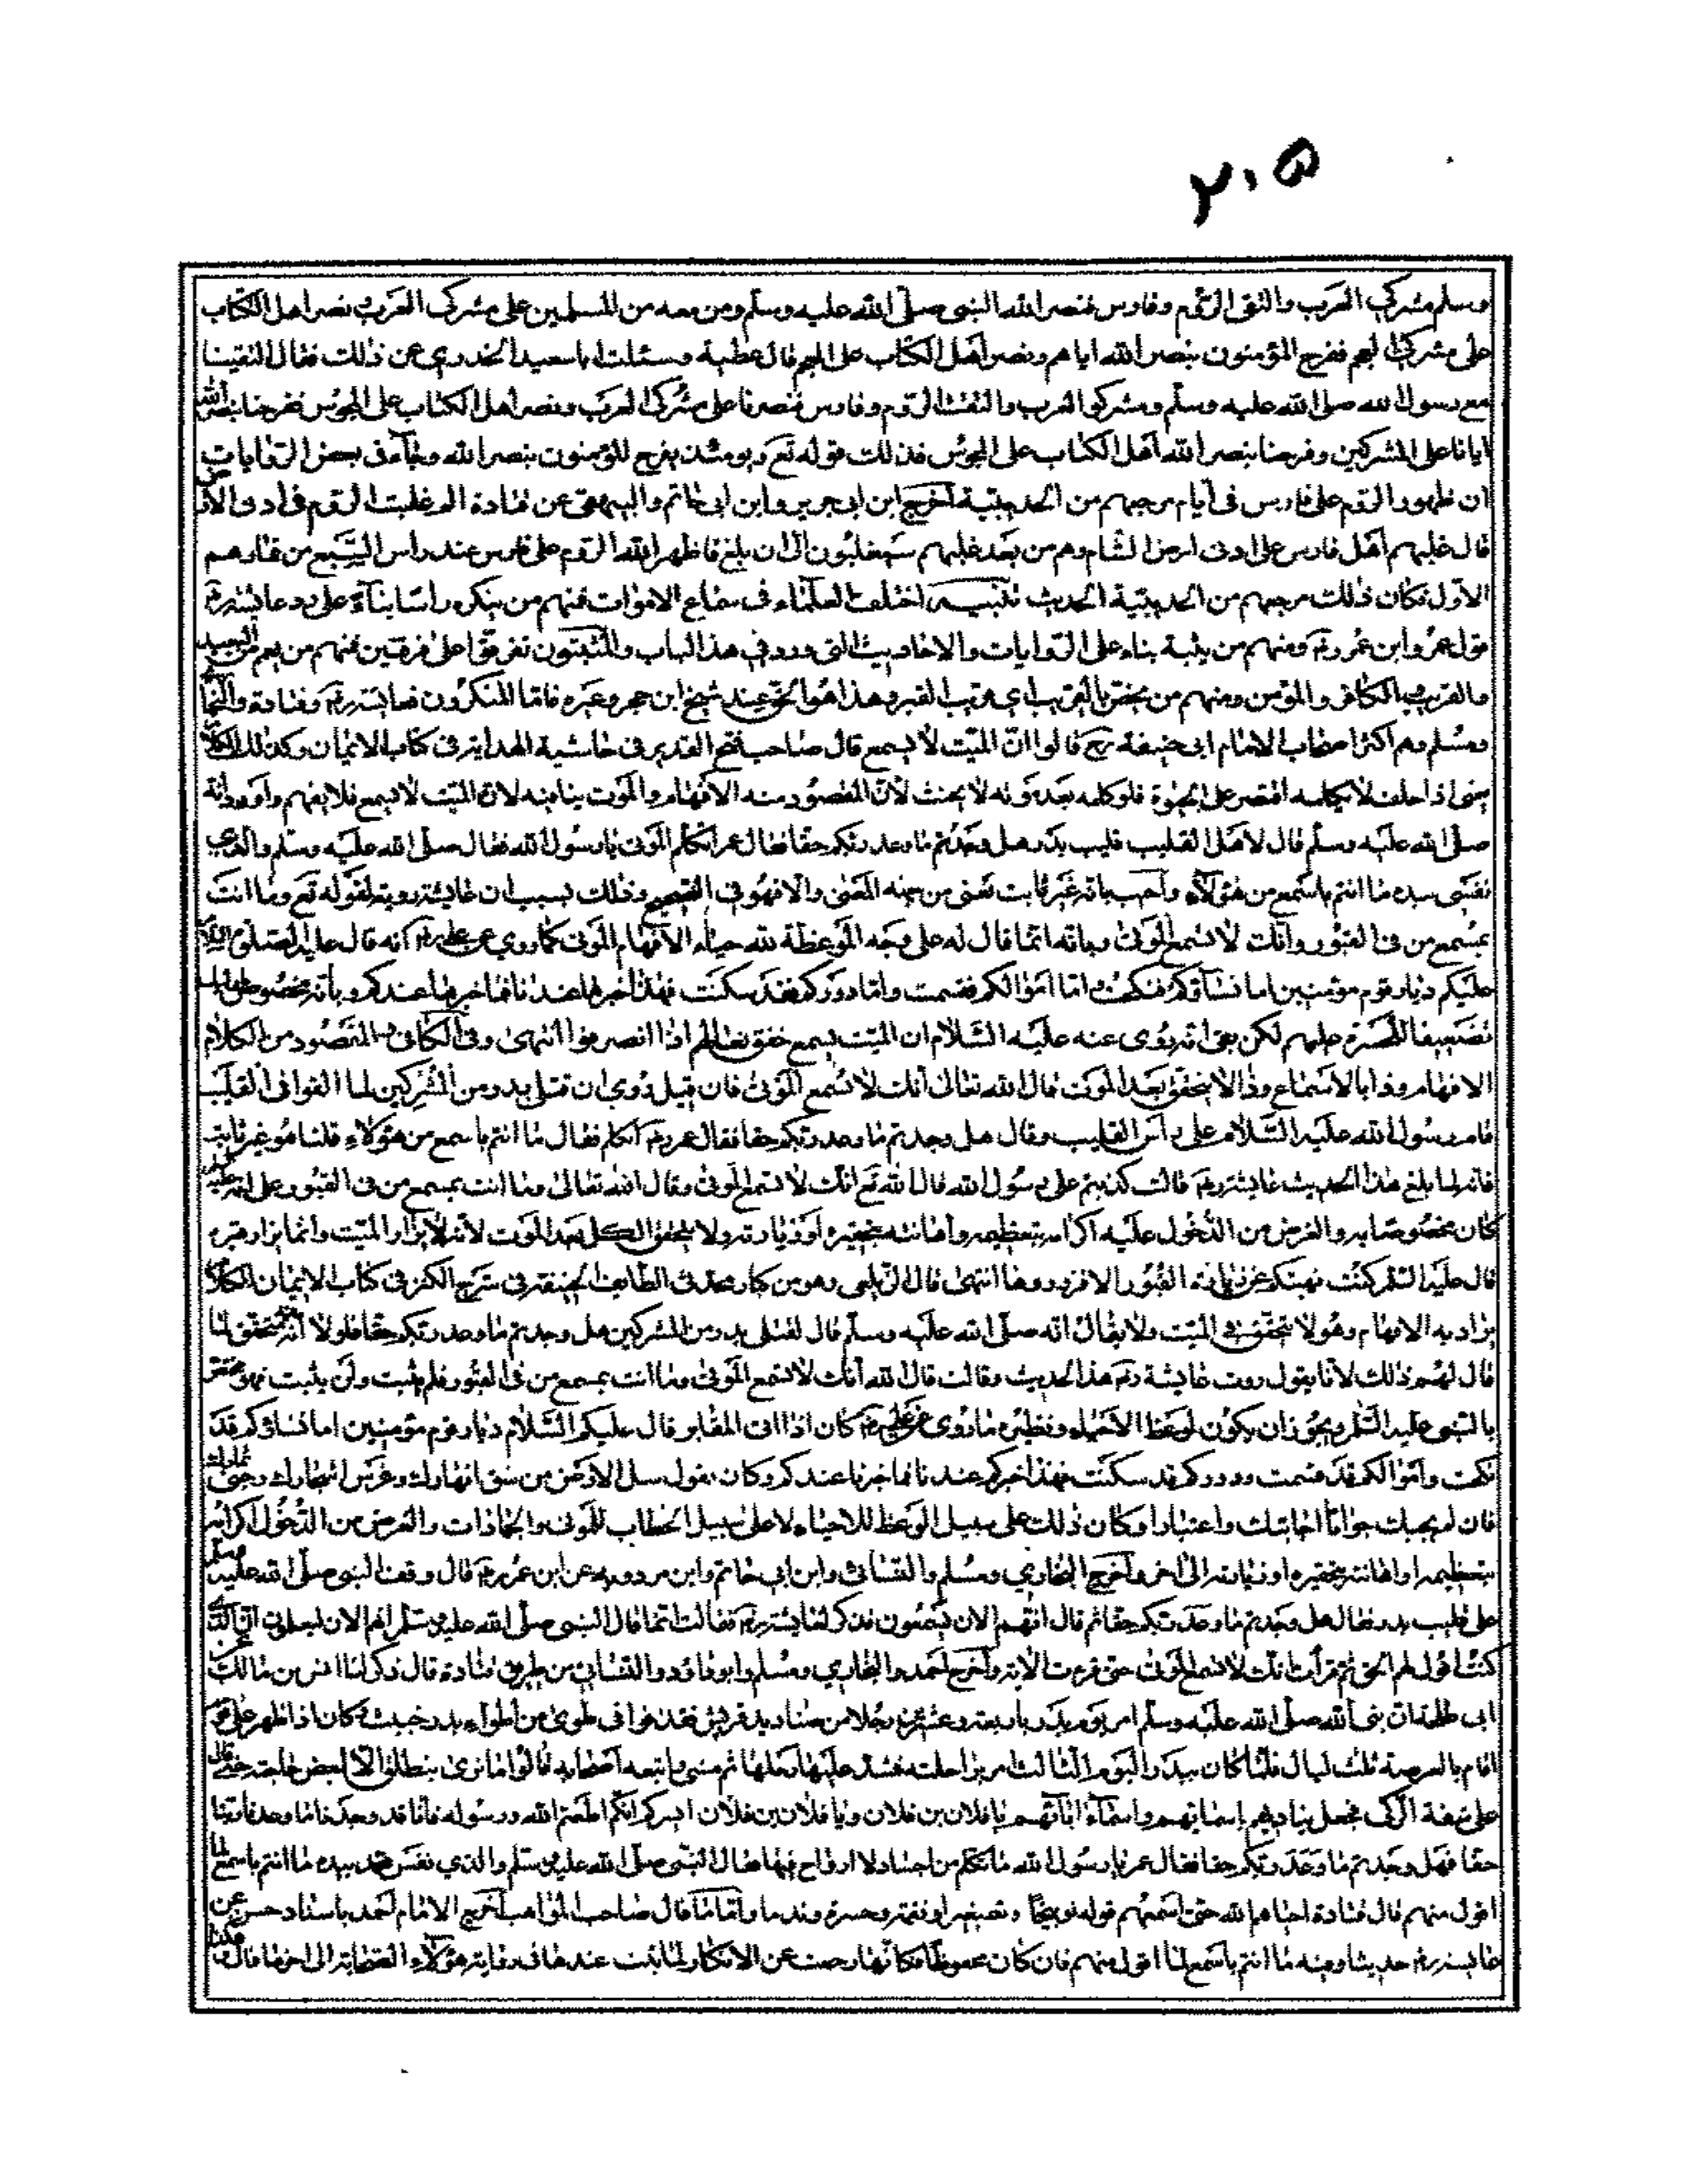 ٢٠٥
وسلم مشركي العرب والتقى الروم وفارس فنصر الله النبي صلى الله عليه وسلم ومن معه من المسلمين على مشركي العرب ونصر اهل الكتاب
على مشركي العجم ففرح المؤمنون بنصر الله اياهم ونصر اهل الكتاب على العجم قال عطية وسئلت ابا سعيد الخدري عن ذلك فقال التقينا
مع رسول الله صلى الله عليه وسلم ومشركو العرب والتقت الروم وفارس فنصرنا على مشركي العرب ونصر اهل الكتاب على المجوس ففرحنا بنصر الله
ايانا على المشركين وفرحنا بنصر الله اهل الكتاب على المجوس فذلك قوله تع ويومئذ يفرح المؤمنون بنصر الله وجآء في بعض الروايات
ان ظهور الروم على فارس في ايام مرجعهم من الحديبية اخرج ابن ابي جرير وابن ابي حاتم والبيهقي عن قتادة الم غلبت الروم في ادنى الارض
قال غلبهم اهل فارس على ادنى ارض الشام وهم من بعد غلبهم سيغلبون الى ان بلغ فاظهر الله الروم على فارس عند راس التسع من
الاول فكان ذلك مرجعهم من الحديبية الحديث تنبيه اختلف العلماء في سماع الاموات فمنهم من ينكره راسا بناء على رد عايشة رم
قول عمر وابن عمر رم ومنهم من يثبته بناء على الروايات والاحاديث التي ورد في هذا الباب والمثبتون تفرقوا على فرقتين فمنهم من يعم من البعيد
والقريب والكافر والمؤمن ومنهم من يختص بالقريب اي قريب القبر وهذا هو الحق عند شيخ ابن حجر وغيره فاما المنكرون فعايشة رم وقتادة
ومسلم وهم اكثر اصحاب الامام ابي حنيفة رح قالوا ان الميت لا يسمع قال صاحب فتح القدير في حاشية الهداية في كتاب الايمان وكذلك الكلام
يعني اذا حلف لا يكلمه اقتصر على الحيوة فلو كلمه بعد موته لا يحنث لان المقصود منه الافهام والموت ينافيه لان الميت لا يسمع فلا يفهم واورد انه
صلى الله عليه وسلم قال لاهل القليب قليب بدر هل وجدتم ما وعد ربكم حقا فقال عمر اتكلم الموتى يا رسول الله فقال صلى الله عليه وسلم والذي
نفسي بيده ما انتم باسمع من هؤلاء واجيب بانه غير ثابت يعني من جهة المعنى والا فهو في الصحيح وذلك بسبب ان عايشة ردته لقوله تع وما انت
بمسمع من في القبور وانك لا تسمع الموتى وبانه انما قال له على وجه الموعظة لله حياء لا لافهام الموتى كما روي عن علي رم انه قال عليه الصلوة السلام
عليكم ديار قوم مؤمنين اما نساؤكم فنكحت واما اموالكم فقسمت واما دوركم فقد سكنت فهذا خبركم عندنا فما خبرنا عندكم وبانه مخصوص
تضعيفا للحسرة عليهم لكن بقي انه روي عنه عليه السلام ان الميت يسمع خفق نعالهم اذا انصرفوا انتهى وفي الكافي المقصود من الكلام
الافهام وذا بالاسماع وذا لا يتحقق بعد الموت قال الله تعالى انك لا تسمع الموتى فان قيل روي ان قتلى بدر من المشركين لما القوا في القليب
قام رسول الله عليه السلام على راس القليب وقال هل وجدتم ما وعد ربكم حقا فقال عمر رم اتكلم فقال ما انتم باسمع من هؤلاء قلنا هو غير ثابت
فانه لما بلغ هذا الحديث عايشة رم قالت كذبتم على رسول الله قال الله تع انك لا تسمع الموتى وقال الله تعالى وما انت بمسمع من في القبور على انه
كان مخصوصا به والغرض من الدخول عليه اكرامه بتعظيمه واهانته بتحقيره او زيارته ولا يتحقق الكل بعد الموت لانه لا يزار الميت وانما يزار قبره
قال عليه السلم كنت نهيتكم عن زيارة القبور الا فزوروها انتهى قال الزيلعي وهو من كبار محدثي الطائفة الحنفية في شرح الكنز في كتاب الايمان الكلام
يراد به الافهام وهو لا يتحقق في الميت ولا يقال انه صلى الله عليه وسلم قال لقتلى بدر من المشركين هل وجدتم ما وعد ربكم حقا فلولا انه يتحقق لما
قال لهم ذلك لانا نقول روت عايشة رم هذا الحديث وقالت قال الله انك لا تسمع الموتى وما انت بمسمع من في القبور فلم يثبت ولئن يثبت فهو مختص
بالنبي عليه السلم ويجوز ان يكون لوعظ الاحياء ونظيره ما روي عن علي رم كان اذا اتى المقابر قال عليكم السلام ديار قوم مؤمنين اما نساؤكم قد
نكحت واموالكم قد قسمت ودوركم قد سكنت فهذا خبركم عندنا فما خبرنا عندكم وكان يقول سل الارض من شق انهارك وغرس اشجارك وجنى ثمارك
فان لم يجبك جوابا اجابتك واعتبارا وكان ذلك على سبيل الوعظ للاحياء لا على سبيل الخطاب للموتى والجمادات والغرض من الدخول اكرامه
بتعظيمه او اهانته بتحقيره او زيارته الى اخره واخرج البخاري ومسلم والنسائي وابن ابي حاتم وابن مردويه عن ابن عمر رم قال وقف النبي صلى الله عليه وسلم
على قليب بدر فقال هل وجدتم ما وعد ربكم حقا ثم قال انهم الان يسمعون فذكر لعايشة رم فقالت انما قال النبي صلى الله عليه وسلم انهم الان ليعلمون ان الذي
كنت اقول لهم الحق ثم قرأت انك لا تسمع الموتى حتى قرءت الآية واخرج احمد والبخاري ومسلم وابو داؤد والنسائي من طريق قتادة قال ذكر لنا انس بن مالك عن
ابي طلحة ان نبي الله صلى الله عليه وسلم امر يوم بدر باربعة وعشرين رجلا من صناديد قريش فقذفوا في طوى من اطواء بدر خبيث وكان اذا ظهر على قوم
اقام بالعرصة ثلث ليال فلما كان ببدر اليوم الثالث امر براحلته فشد عليها رحلها ثم مشى واتبعه اصحابه قالوا ما نرى ينطلق الا لبعض حاجته حتى قام
على شفة الركي فجعل يناديهم باسمائهم واسماء ابائهم يا فلان بن فلان ويا فلان بن فلان ايسركم انكم اطعتم الله ورسوله فانا قد وجدنا ما وعدنا ربنا
حقا فهل وجدتم ما وعد ربكم حقا فقال عمر يا رسول الله ما تكلم من اجساد لا ارواح فيها فقال النبي صلى الله عليه وسلم والذي نفس محمد بيده ما انتم باسمع لما
اقول منهم قال قتادة احياهم الله حتى اسمعهم قوله توبيخا وتصغيرا ونقمة وحسرة وندما واما ما قال صاحب المواهب اخرج الامام احمد باسناد حسن عن
عايشة رم حديثا وفيه ما انتم باسمع لما اقول منهم فان كان محفوظا فكانها رجعت عن الانكار لما ثبت عندها في رواية هؤلاء الصحابة الى اخر ما قال